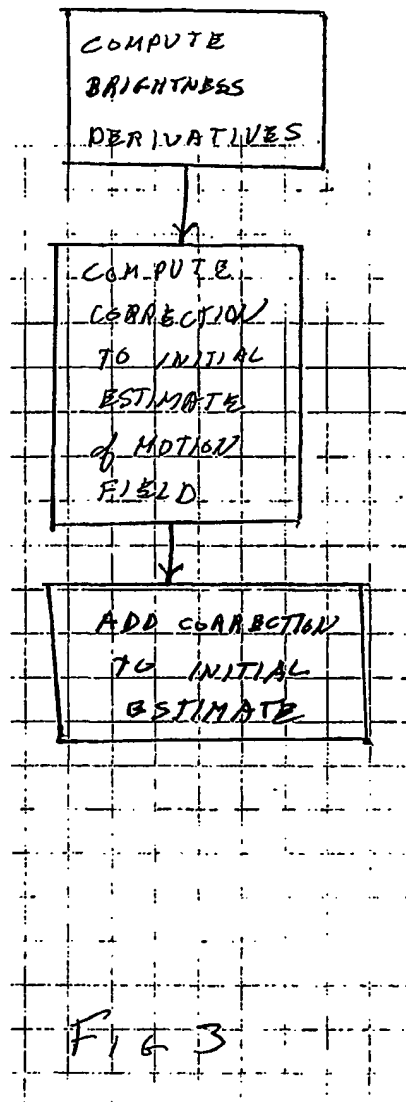 COMPUTE
BRIGHTNESS
DERIVATIVES
COMPUTE
CORRECTION
TO INITIAL
ESTIMATE
of MOTION
FIELD
ADD CORRECTION
TO INITIAL
ESTIMATE
FIG 3